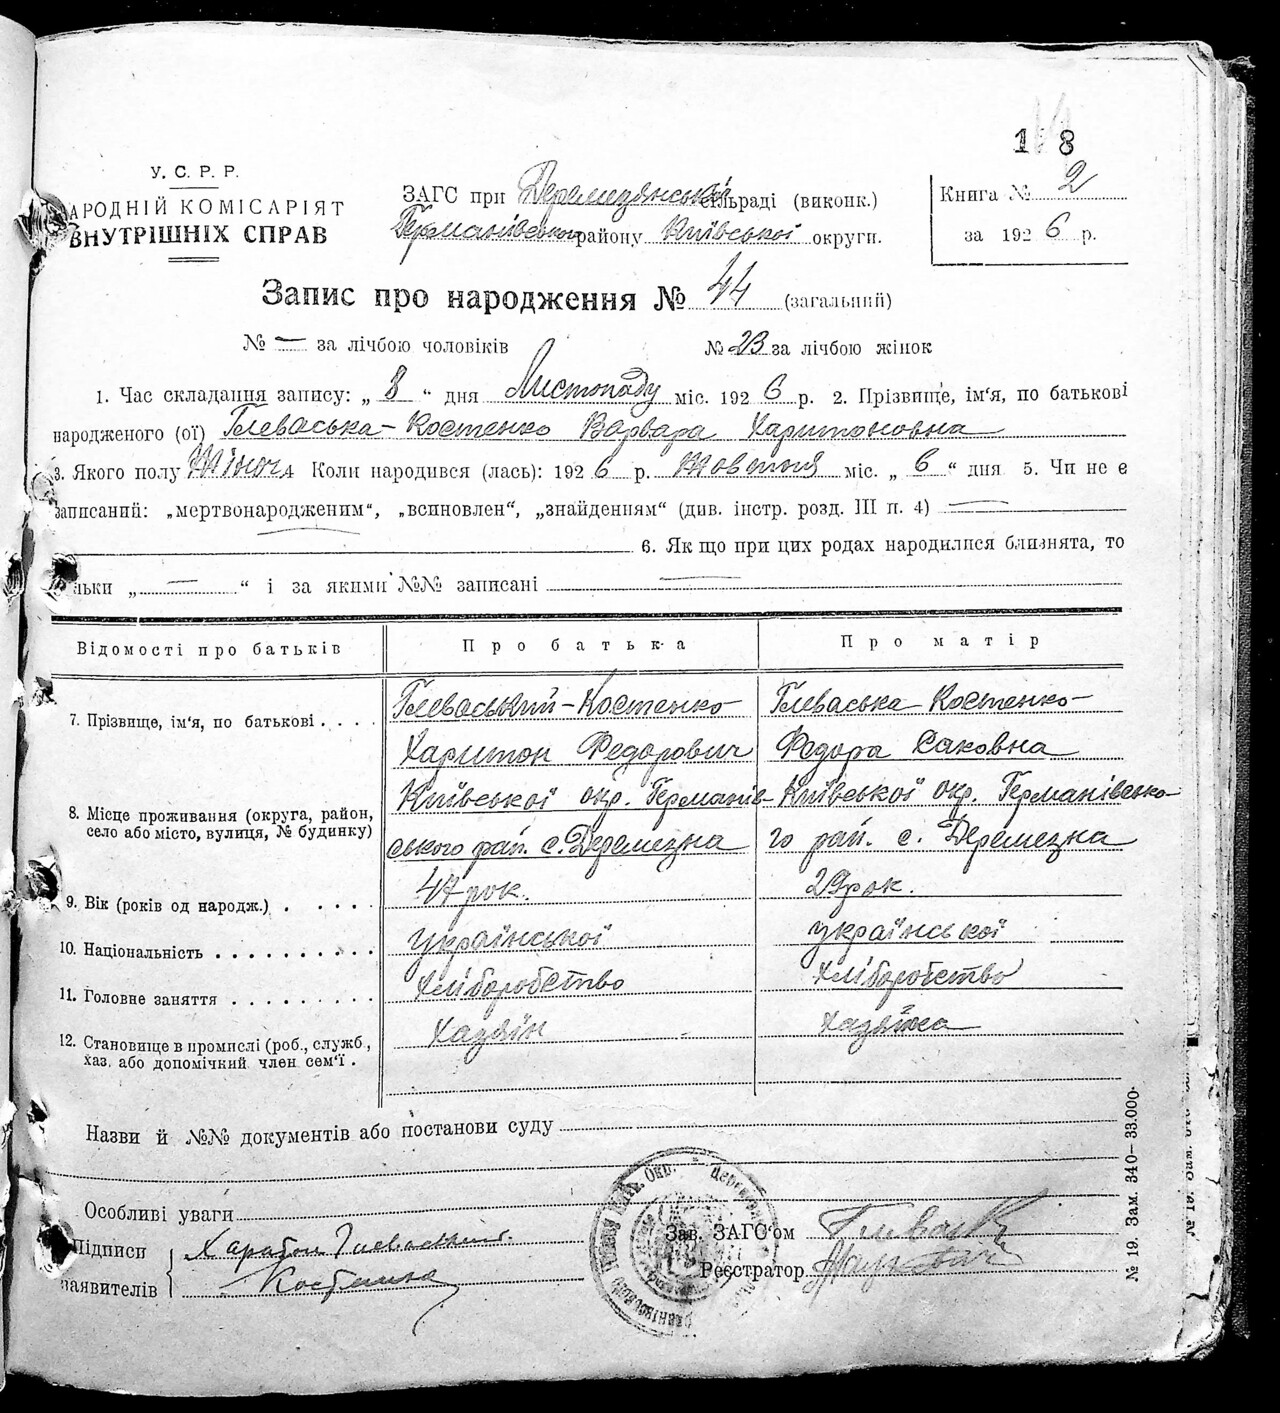 118
У. С. Р. Р.
НАРОДНІЙ КОМІСАРІЯТ
ВНУТРІШНІХ СПРАВ
ЗАГС при Деремезянській сільраді (виконк.)
Германівського району Київської округи.
Книга № 2
за 1926 р.
Запис про народження № 44 (загальний)
№ — за лічбою чоловіків № 23 за лічбою жінок
1. Час складання запису: „ 8 “ дня Листопаду міс. 1926 р. 2. Прізвище, ім‘я, по батькові
народженого (ої) Глеваська-Костенко Варвара Харитоновна
3. Якого полу Жіноч. 4 Коли народився (лась): 1926 р. Жовтня міс. „ 6 “ дня 5. Чи не є
записаний: „мертвонародженим“, „всиновлен“, „знайденням“ (див. інстр. розд. III п. 4) —
6. Якщо при цих родах народилися близнята, то
льки „ — “ і за якими №№ записані —
Відомості про батьків Про батька Про матір
7. Прізвище, ім‘я, по батькові . . . . Глеваський-Костенко Харитон Федорович Глеваська Костенко Федора Саковна
8. Місце проживання (округа, район, село або місто, вулиця, № будинку) Київської окр. Германівського рай. с. Деремезна Київської окр. Германівського рай. с. Деремезна
9. Вік (років од народж.) . . . . . 47 рок. 29 рок.
10. Національність . . . . . . . . . . української української
11. Головне заняття . . . . . . . . . Хліборобство Хліборобство
12. Становище в промислі (роб., служб., хаз. або допомічний член сем‘ї . Хазяїн Хазяйка
Назви й №№ документів або постанови суду
Особливі уваги
Підписи Харитон Глеваский
заявителів Костенко
Зав. ЗАГС‘ом Глевас
Реєстратор
№ 19. Зам. 340—33.000.